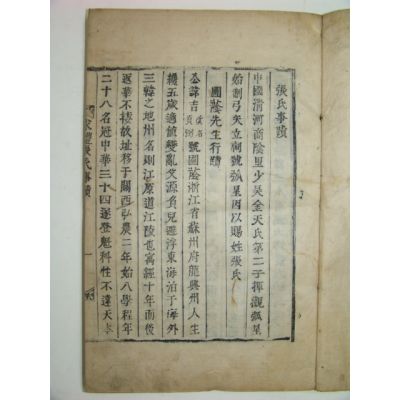 張氏事蹟
中國淸河商陰里少昊金天氏第二子揮觀弧星
始制弓矢立祠號弧星因以賜姓張氏
國蔭先生行蹟
公諱吉號國蔭浙江省蘇州府龍興州人生
纔五歲適飢變亂父源負兒避浮東海泊于海外
三韓之地州名則江原道江陵也寓經十年而後
返華不㙮故址移于關西弘農二年始入學程年
二十八名冠中華三十四逐登魁科性不達天
張氏事蹟
一